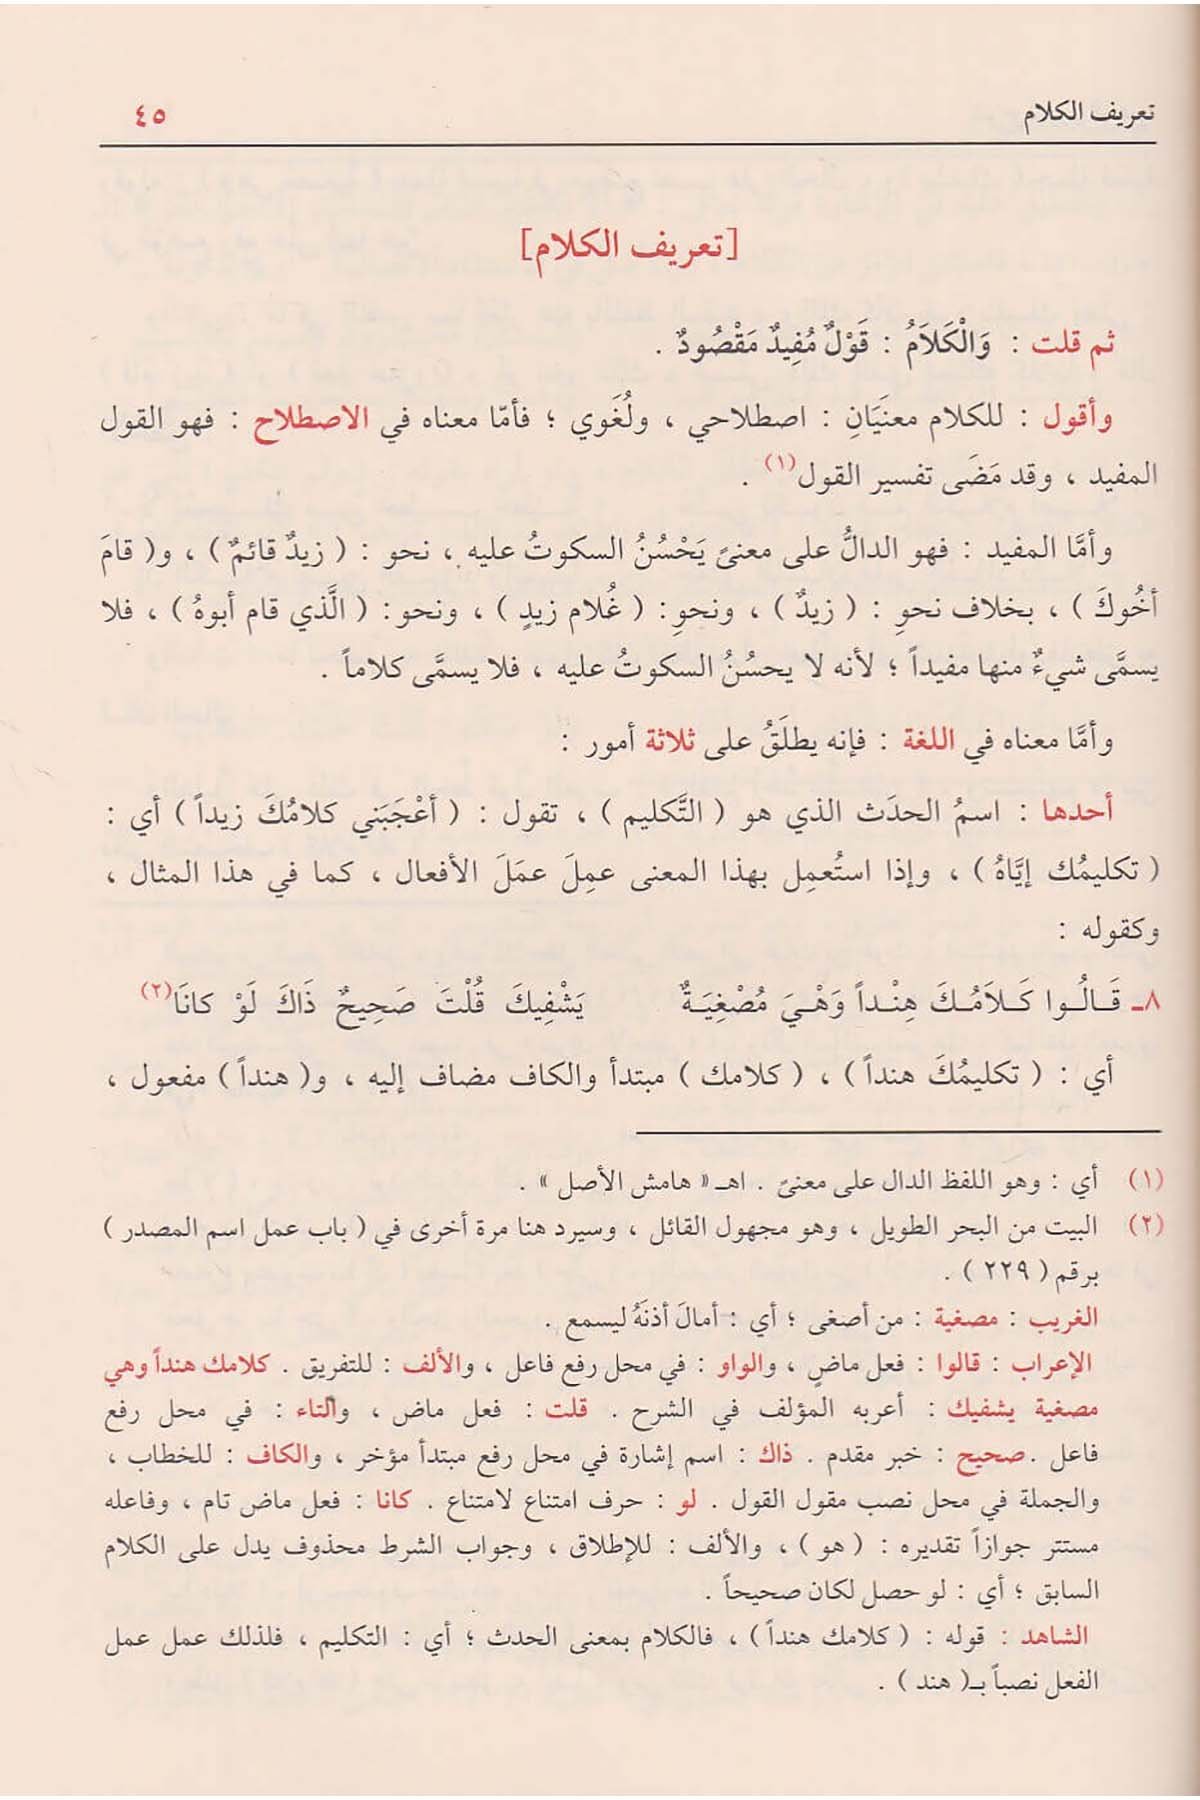 تعريف الكلام ٤٥
[تعريف الكلام]
ثم قلت : وَالْكَلاَمُ : قَوْلٌ مُفِيدٌ مَقْصُودٌ .
وأقول : للكلام معنَيَانِ : اصطلاحي ، ولُغَوي ؛ فأمّا معناه في الاصطلاح : فهو القول
المفيد ، وقد مَضَى تفسير القول(١) .
وأمَّا المفيد : فهو الدالُّ على معنىً يَحْسُنُ السكوتُ عليه ، نحو : ( زيدٌ قائمٌ ) ، و( قامَ
أخُوكَ ) ، بخلاف نحوِ : ( زيدٌ ) ، ونحوِ : ( غُلام زيدٍ ) ، ونحو : ( الَّذي قام أبوهُ ) ، فلا
يسمَّى شيءٌ منها مفيداً ؛ لأنه لا يحسُنُ السكوتُ عليه ، فلا يسمَّى كلاماً .
وأمَّا معناه في اللغة : فإنه يطلَقُ على ثلاثة أمور :
أحدها : اسمُ الحدَث الذي هو ( التَّكليم ) ، تقول : ( أعْجَبَني كلامُكَ زيداً ) أي :
( تكليمُك إيَّاهُ ) ، وإذا استُعمِل بهذا المعنى عمِلَ عمَلَ الأفعال ، كما في هذا المثال ،
وكقوله :
٨ـ قَـالُـوا كَـلاَمُـكَ هِنْـداً وَهْـيَ مُصْغِيَـةٌ يَشْفِيكَ قُلْتَ صَحِيحٌ ذَاكَ لَوْ كانَا(٢)
أي : ( تكليمُكَ هنداً ) ، ( كلامك ) مبتدأ والكاف مضاف إليه ، و( هنداً ) مفعول ،
(١) أي : وهو اللفظ الدال على معنىً . اهـ « هامش الأصل » .
(٢) البيت من البحر الطويل ، وهو مجهول القائل ، وسيرد هنا مرة أخرى في ( باب عمل اسم المصدر )
برقم ( ٢٢٩ ) .
الغريب : مصغية : من أصغى ؛ أي : أمالَ أذنَهُ ليسمع .
الإعراب : قالوا : فعل ماضٍ ، والواو : في محل رفع فاعل ، والألف : للتفريق . كلامك هنداً وهي
مصغية يشفيك : أعربه المؤلف في الشرح . قلت : فعل ماض ، والتاء : في محل رفع
فاعل . صحيح : خبر مقدم . ذاك : اسم إشارة في محل رفع مبتدأ مؤخر ، والكاف : للخطاب ،
والجملة في محل نصب مقول القول . لو : حرف امتناع لامتناع . كانا : فعل ماض تام ، وفاعله
مستتر جوازاً تقديره : ( هو ) ، والألف : للإطلاق ، وجواب الشرط محذوف يدل على الكلام
السابق ؛ أي : لو حصل لكان صحيحاً .
الشاهد : قوله : ( كلامك هنداً ) ، فالكلام بمعنى الحدث ؛ أي : التكليم ، فلذلك عمل عمل
الفعل نصباً بـ( هند ) .